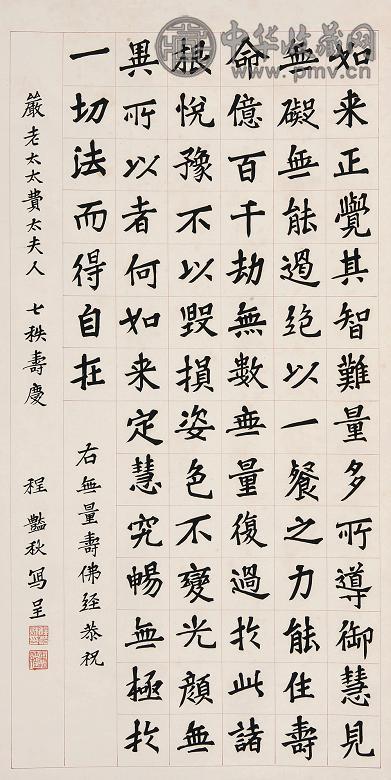 如来正覺其智難量多所導御慧見
無礙無能遏絕以一餐之力能住壽
命億百千劫無數無量復過於此諸
根悅豫不以毀損姿色不變光顏無
異所以者何如来定慧究暢無極於
一切法而得自在
右無量壽佛經恭祝
嚴老太太費太夫人 七秩壽慶
程豔秋寫呈
中华收藏网
www.pmv.cn